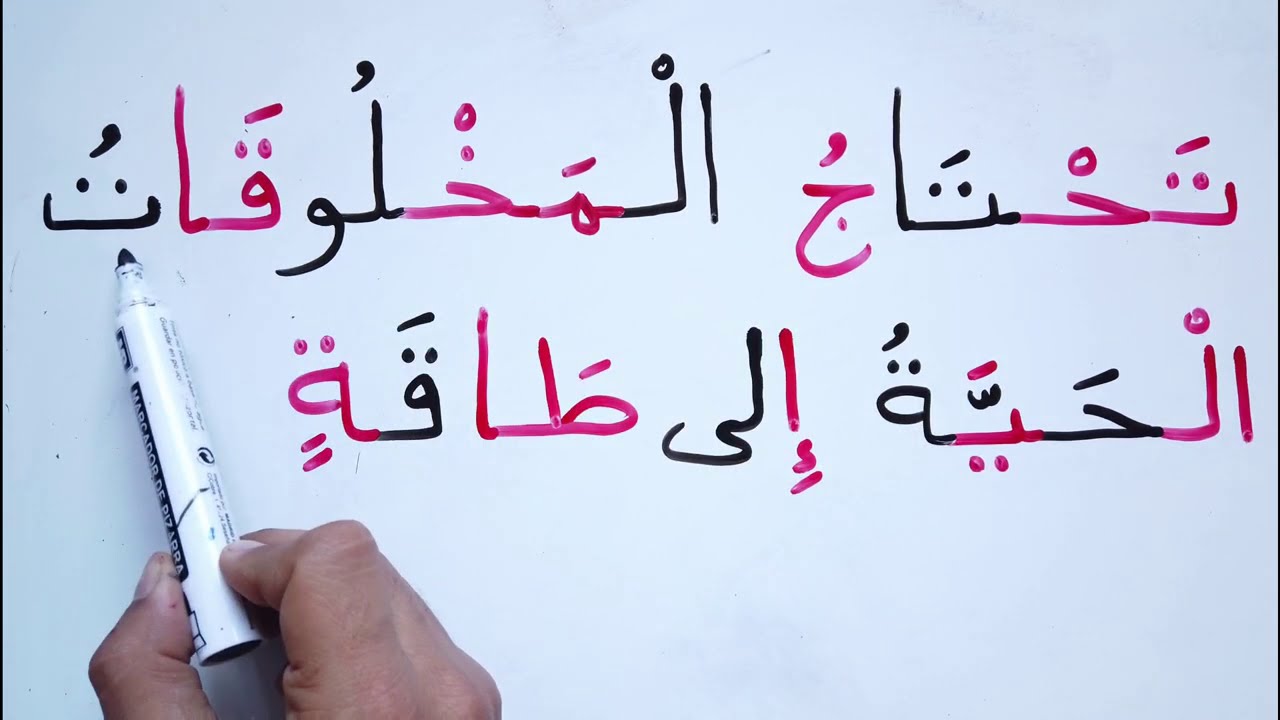 تَحْتَاجُ الْمَخْلُوقَاتُ
الْحَيَّةُ إِلى طَاقَةٍ
MARCADOR DE PIZARRA